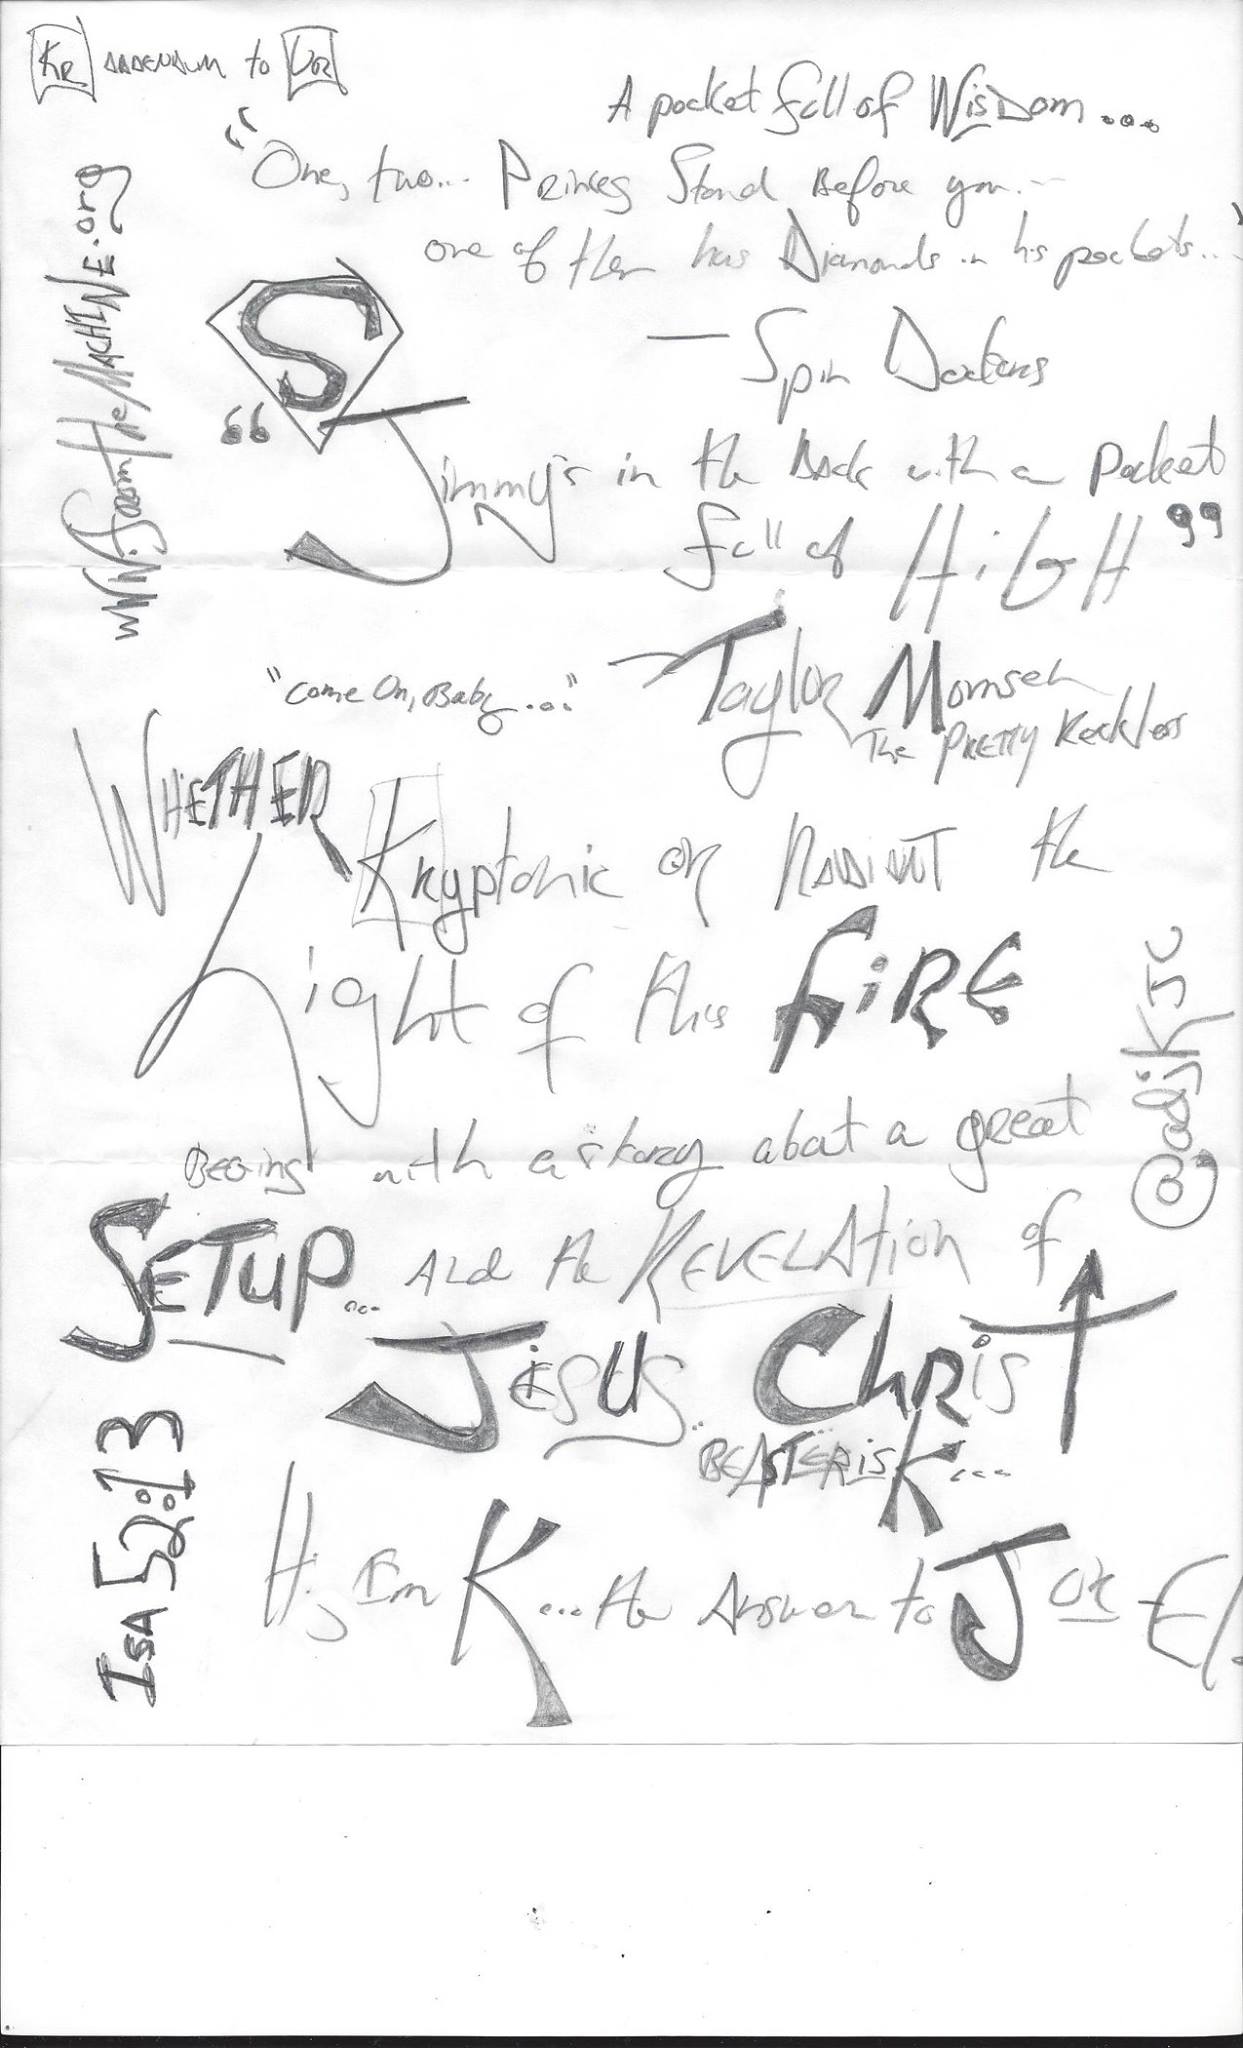 KR ADDENDUM to
A pocket full of WisDom....
"One, two... Princes Stand Before you...
one of them has Diamonds in his pockets..."
— Spin Doctors
S
"Jimmy's in the back with a Pocket
full of HiGH"
— Taylor Momsen
The PRETTY Reckless
"Come On, Baby..."
WHETHER Kryptonic or RADIANT the
light of this FiRE
BEGins with a story about a great
SETUP... And the REVELATiON of
JESUS CHRiST
..BEASTERiSK...
Hi, I'm K... the Answer to
www.fromtheMACHINE.org
@adjKJC
ISA 52:13